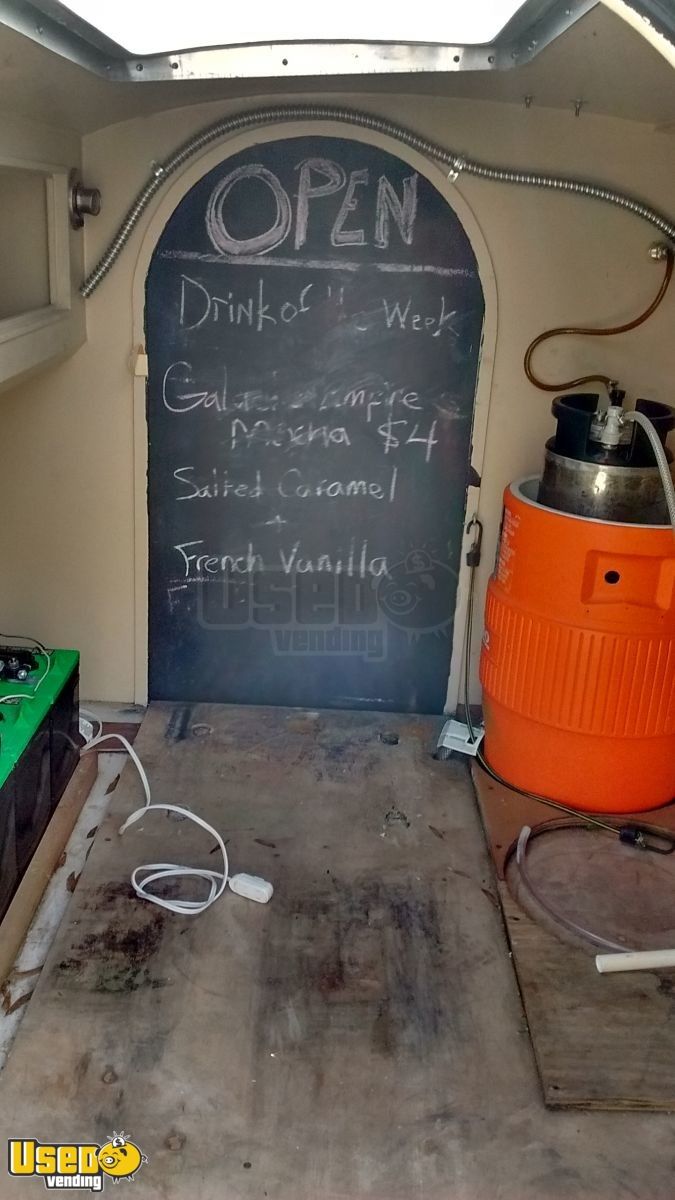 OPEN
Drink of the Week
Mocha $4
Salted Caramel
+
French Vanilla
USED
vending
USED
vending